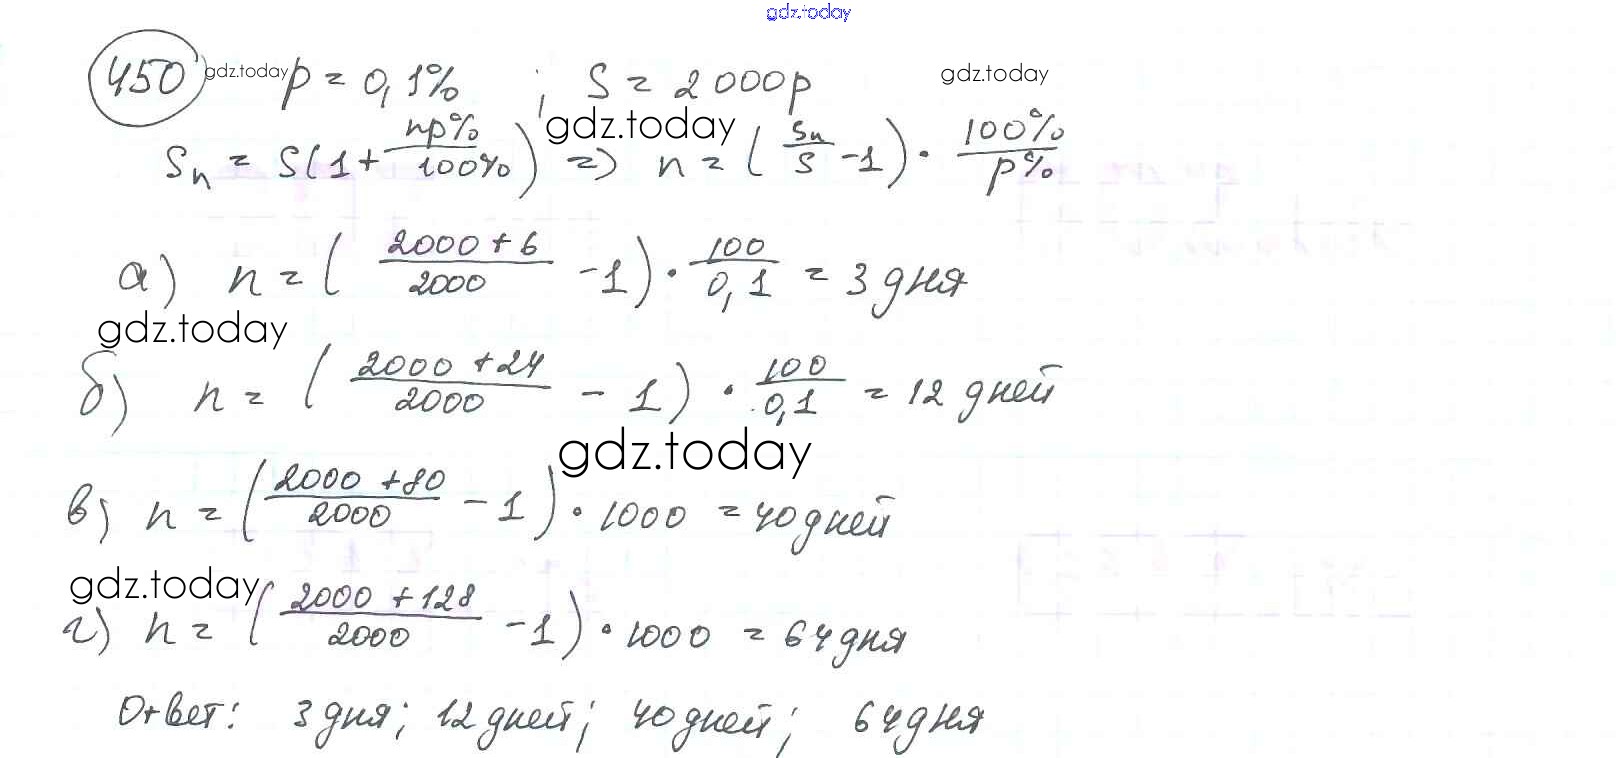 gdz.today
450 gdz.today p = 0,1% ; S = 2000р gdz.today
Sn = S(1 + np%/100%) gdz.today => n = (Sn/S - 1) · 100%/p%
а) n = (2000 + 6/2000 - 1) · 100/0,1 = 3 дня
gdz.today
б) n = (2000 + 24/2000 - 1) · 100/0,1 = 12 дней
gdz.today
в) n = (2000 + 80/2000 - 1) · 1000 = 40 дней
gdz.today
г) n = (2000 + 128/2000 - 1) · 1000 = 64 дня
Ответ: 3 дня; 12 дней; 40 дней; 64 дня